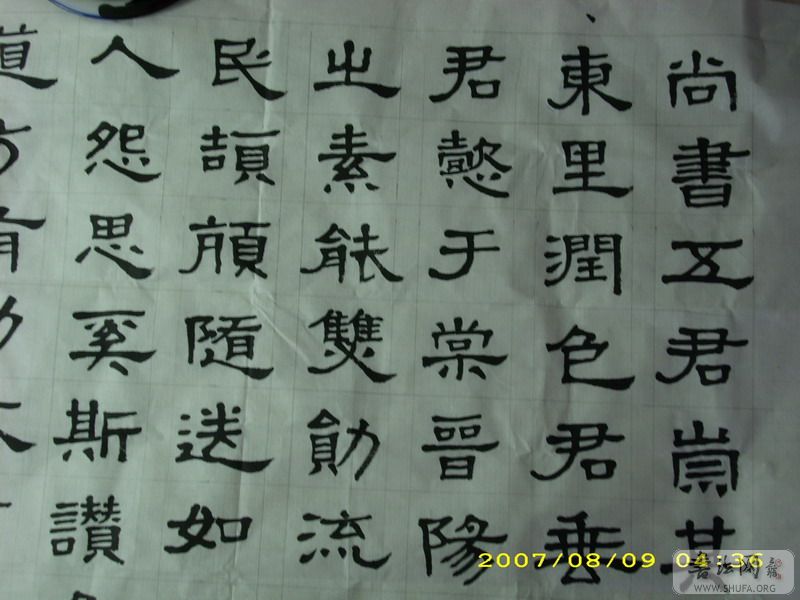 尚書五君崇其
東里潤色君垂
君懿于棠晉陽
之素能雙勛流
民頡頏隨送如
人怨思奚斯讚
2007/08/09 04:36
书法网
WWW.SHUFA.ORG